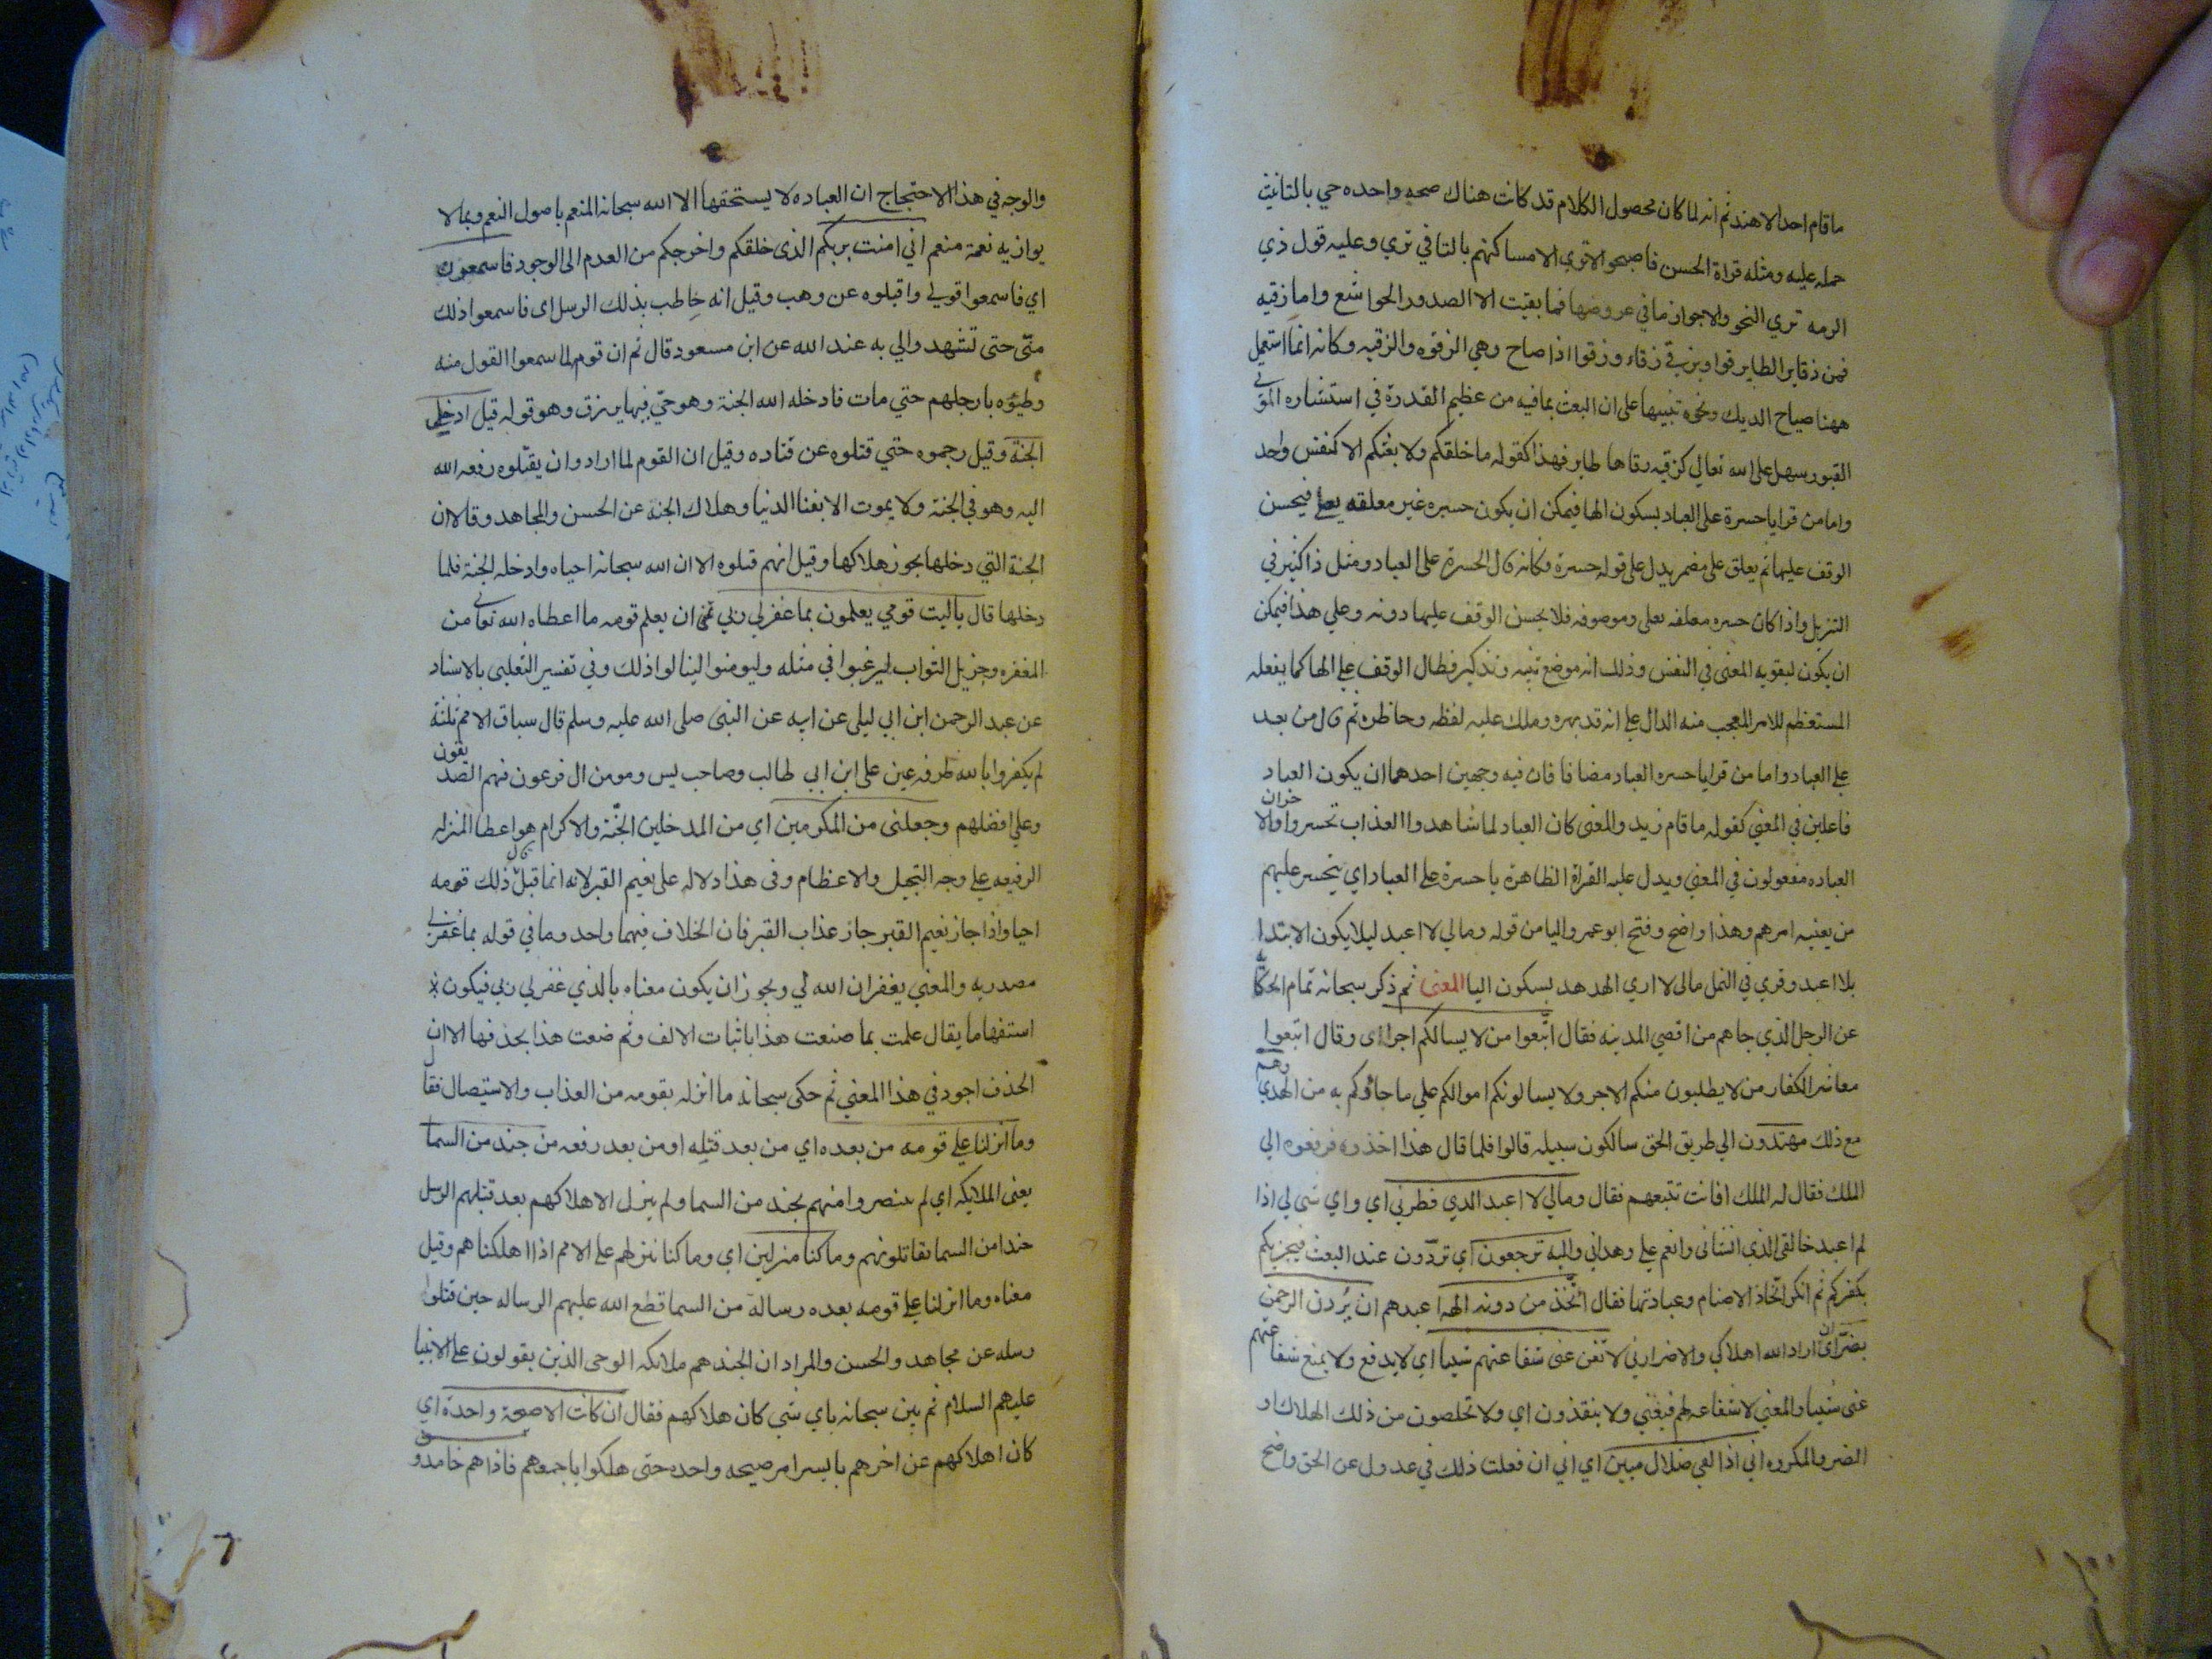 ما قام احد الا هند ثم انه لما كان محصول الكلام قد كانت هناك صحه واحده جي بالتانيث
حمله عليه ومثله قراة الحسن فاصبحوا لا تري الا مساكنهم بالتا في تري وعليه قول ذي
الرمه تري النحو والاجواز ما في عروضها فما بقيت الا الصدور الحواشع واما زقيه
فمن زقا الطاير قوا ويزقي زقاء وزقوا اذا صاح وهي الزقوه والزقيه وكانه انما استعمل
ههنا صياح الديك ونحوه تنبيها على ان البعث بما فيه من عظيم القدرة في استثاره الموتي
القبور سهل على الله تعالي كزقيه زقاها طاير فهذا كقوله ما خلقكم ولا بعثكم الا كنفس واحد
واما من قرا يا حسرة على العباد بسكون الها فيمكن ان يكون حسره غير معلقه بعلي فيحسن
الوقف عليها ثم يعلق على مضمر يدل على قوله حسرة فكانه قال الحسرة على العباد ومثل ذا كثير في
التنزيل واذا كان حسره معلقه بعلى وموصوفه فلا يحسن الوقف عليها دونه وعلي هذا فيمكن
ان يكون لتقويه المعنى في النفس وذلك انه موضع تنبيه وتذكير فطال الوقف علي الها كما يفعله
المستعظم للامر المعجب منه الدال علي انه قد بهره وملك عليه لفظه وخاطره ثم قال من بعد
علي العباد واما من قرا يا حسره العباد مضافا فان فيه وجهين احدهما ان يكون العباد
فاعلين في المعني كقوله ما قام زيد والمعنى كان العباد لما شاهدوا العذاب تحسروا والاخران
العباده مفعولون في المعني ويدل عليه القراة الظاهرة يا حسرة علي العباد اي يتحسر عليهم
من يعنيه امرهم وهذا واضح وفتح ابو عمرو اليا من قوله ومالي لا اعبد ليلا يكون الابتدا
بلا اعبد وقري في النمل مالى لا اري الهدهد بسكون اليا المعنى ثم ذكر سبحانه تمام الحكايه
عن الرجل الذي جاهم من اقصي المدينه فقال اتبعوا من لا يسالكم اجرا اى وقال اتبعوا
معاشر الكفار من لا يطلبون منكم الاجر ولا يسالونكم اموالكم علي ما جاؤكم به من الهدي وهم
مع ذلك مهتدون الي طريق الحق سالكون سبيله قالوا فلما قال هذا اخذوه فرفعوه الي
الملك فقال له الملك افانت تتبعهم فقال ومالي لا اعبد الذي فطرني اي واي شي لي اذا
لم اعبد خالقى الذى انشانى وانعم علي وهداني واليه ترجعون اي تردّون عند البعث فيجزيكم
بكفركم ثم انكر اتخاذ الاصنام وعبادتها فقال ااتخذ من دونه الهه اعبدهم ان يردن الرحمن
بضر اى ان اراد الله اهلاكي والاضرار بي لا تغن عنى شفاعتهم شيا اي لا يدفع ولا يمنع شفاعتهم
عنى شيا والمعني لا شفاعه لهم فيغني ولا ينقذون اي ولا تخلصون من ذلك الهلاك او
الضر والمكروه اني اذا لفي ضلال مبين اي اني ان فعلت ذلك في عدول عن الحق واضح
والوجه في هذا الاحتجاج ان العباده لا يستحقها الا الله سبحانه المنعم باصول النعم وبما لا
يوازيه نعمة منعم اني امنت بربكم الذى خلقكم واخرجكم من العدم الى الوجود فاسمعون
اي فاسمعوا قولي واقبلوه عن وهب وقيل انه خاطب بذلك الرسل اى فاسمعوا ذلك
منّى حتى تشهدوا لي به عند الله عن ابن مسعود قال ثم ان قومه لما سمعوا القول منه
وطيؤه بارجلهم حتي مات فادخله الله الجنة وهو حيّ فيها يرزق وهو قوله قيل ادخل
الجنة وقيل رجموه حتي قتلوه عن قتاده وقيل ان القوم لما ارادوا ان يقتلوه رفعه الله
اليه وهو في الجنة ولا يموت الا بفنا الدنيا وهلاك الجنة عن الحسن والمجاهد وقالا ان
الجنة التي دخلها يجوز هلاكها وقيل انهم قتلوه الا ان الله سبحانه احياه وادخله الجنة فلما
دخلها قال يا ليت قومي يعلمون بما غفر لي ربي تمنى ان يعلم قومه ما اعطاه الله تعالى من
المغفره وجزيل الثواب ليرغبوا في مثله وليومنوا لينالوا ذلك وفي تفسير الثعلبى بالاسناد
عن عبد الرحمن ابن ابي ليلى عن ابيه عن النبى صلى الله عليه وسلم قال سباق الامم ثلثة
لم يكفروا بالله طرفه عين على ابن ابي طالب وصاحب يس ومومن ال فرعون فهم الصديقون
وعلي افضلهم وجعلنى من المكرمين اي من المدخلين الجنّة والاكرام هو اعطا المنزله
الرفيعه علي وجه التبجيل والاعظام وفى هذا دلاله على نعيم القبر لانه انما قال ذلك قومه
احيا واذا جاز نعيم القبر جاز عذاب القبر فان الخلاف فيهما واحد وما في قوله بما غفر لي
مصدريه والمعني بغفران الله لي ويجوز ان يكون معناه بالذي غفر لي ربي فيكون
استفهاما يقال علمت بما صنعت هذا باثبات الالف وبم صنعت هذا بحذفها الا ان
الحذف اجود في هذا المعني ثم حكى سبحانه ما انزله بقومه من العذاب والاستيصال فقال
وما انزلنا علي قومه من بعده اي من بعد قتله او من بعد رفعه من جند من السما
يعنى الملايكه اي لم ينتصر منهم بجند من السما ولم ينزل الا هلاكهم بعد قتلهم الرسل
جندا من السما يقاتلونهم وما كنا منزلين اي وما كنا ننزلهم على الامم اذا اهلكناهم وقيل
معناه وما انزلنا علي قومه بعده رسالة من السما قطع الله عليهم الرساله حين قتلوا
رسله عن مجاهد والحسن والمراد ان الجند هم ملائكه الوحى الذين يقولون علي الانبيا
عليهم السلام ثم بين سبحانه باي شي كان هلاكهم فقال ان كانت الا صيحة واحدة اي
كان اهلاكهم عن اخرهم بايسر امر صيحه واحده حتى هلكوا باجمعهم فاذا هم خامدون